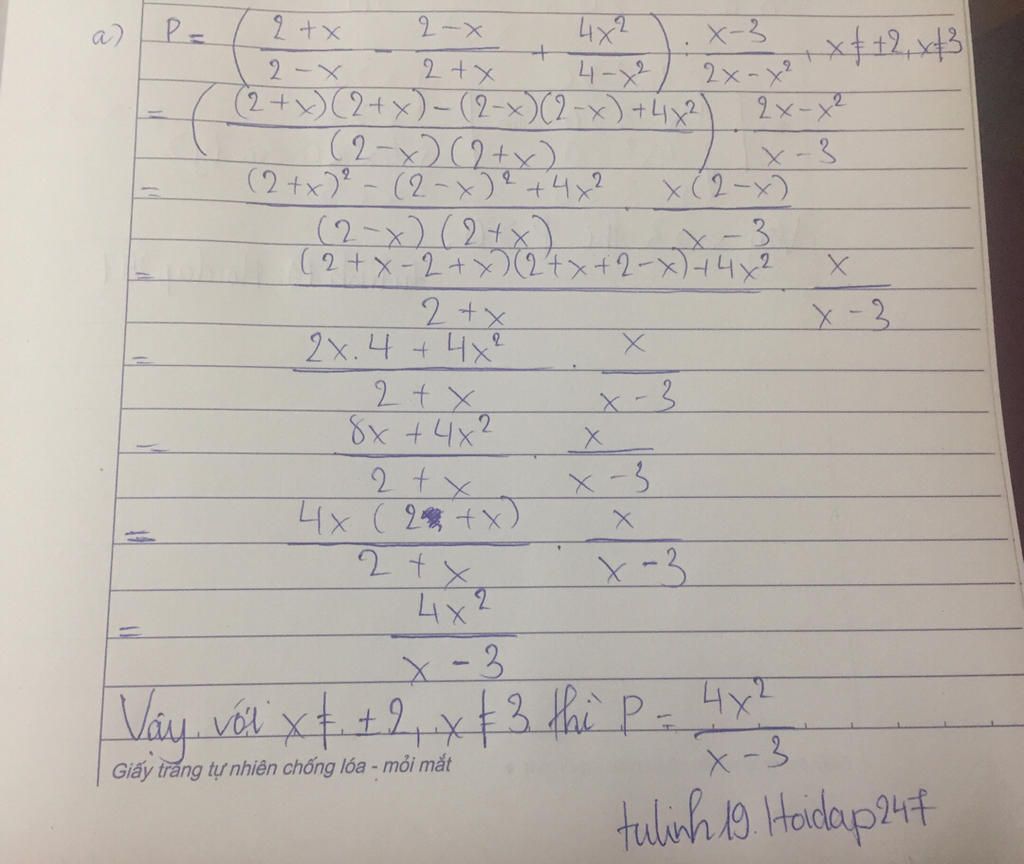 a) P = ( (2 + x)/(2 - x) - (2 - x)/(2 + x) + 4x²/(4 - x²) ) : (x - 3)/(2x - x²) , x ≠ ±2, x ≠ 3
= ( ((2 + x)(2 + x) - (2 - x)(2 - x) + 4x²)/((2 - x)(2 + x)) ) . (2x - x²)/(x - 3)
= ((2 + x)² - (2 - x)² + 4x²)/((2 - x)(2 + x)) . x(2 - x)/(x - 3)
= ((2 + x - 2 + x)(2 + x + 2 - x) + 4x²)/(2 + x) . x/(x - 3)
= (2x.4 + 4x²)/(2 + x) . x/(x - 3)
= (8x + 4x²)/(2 + x) . x/(x - 3)
= 4x(2 + x)/(2 + x) . x/(x - 3)
= 4x²/(x - 3)
Vậy với x ≠ ±2, x ≠ 3 thì P = 4x²/(x - 3)
Giấy trắng tự nhiên chống lóa - mỏi mắt
tulinh19.Hoidap247